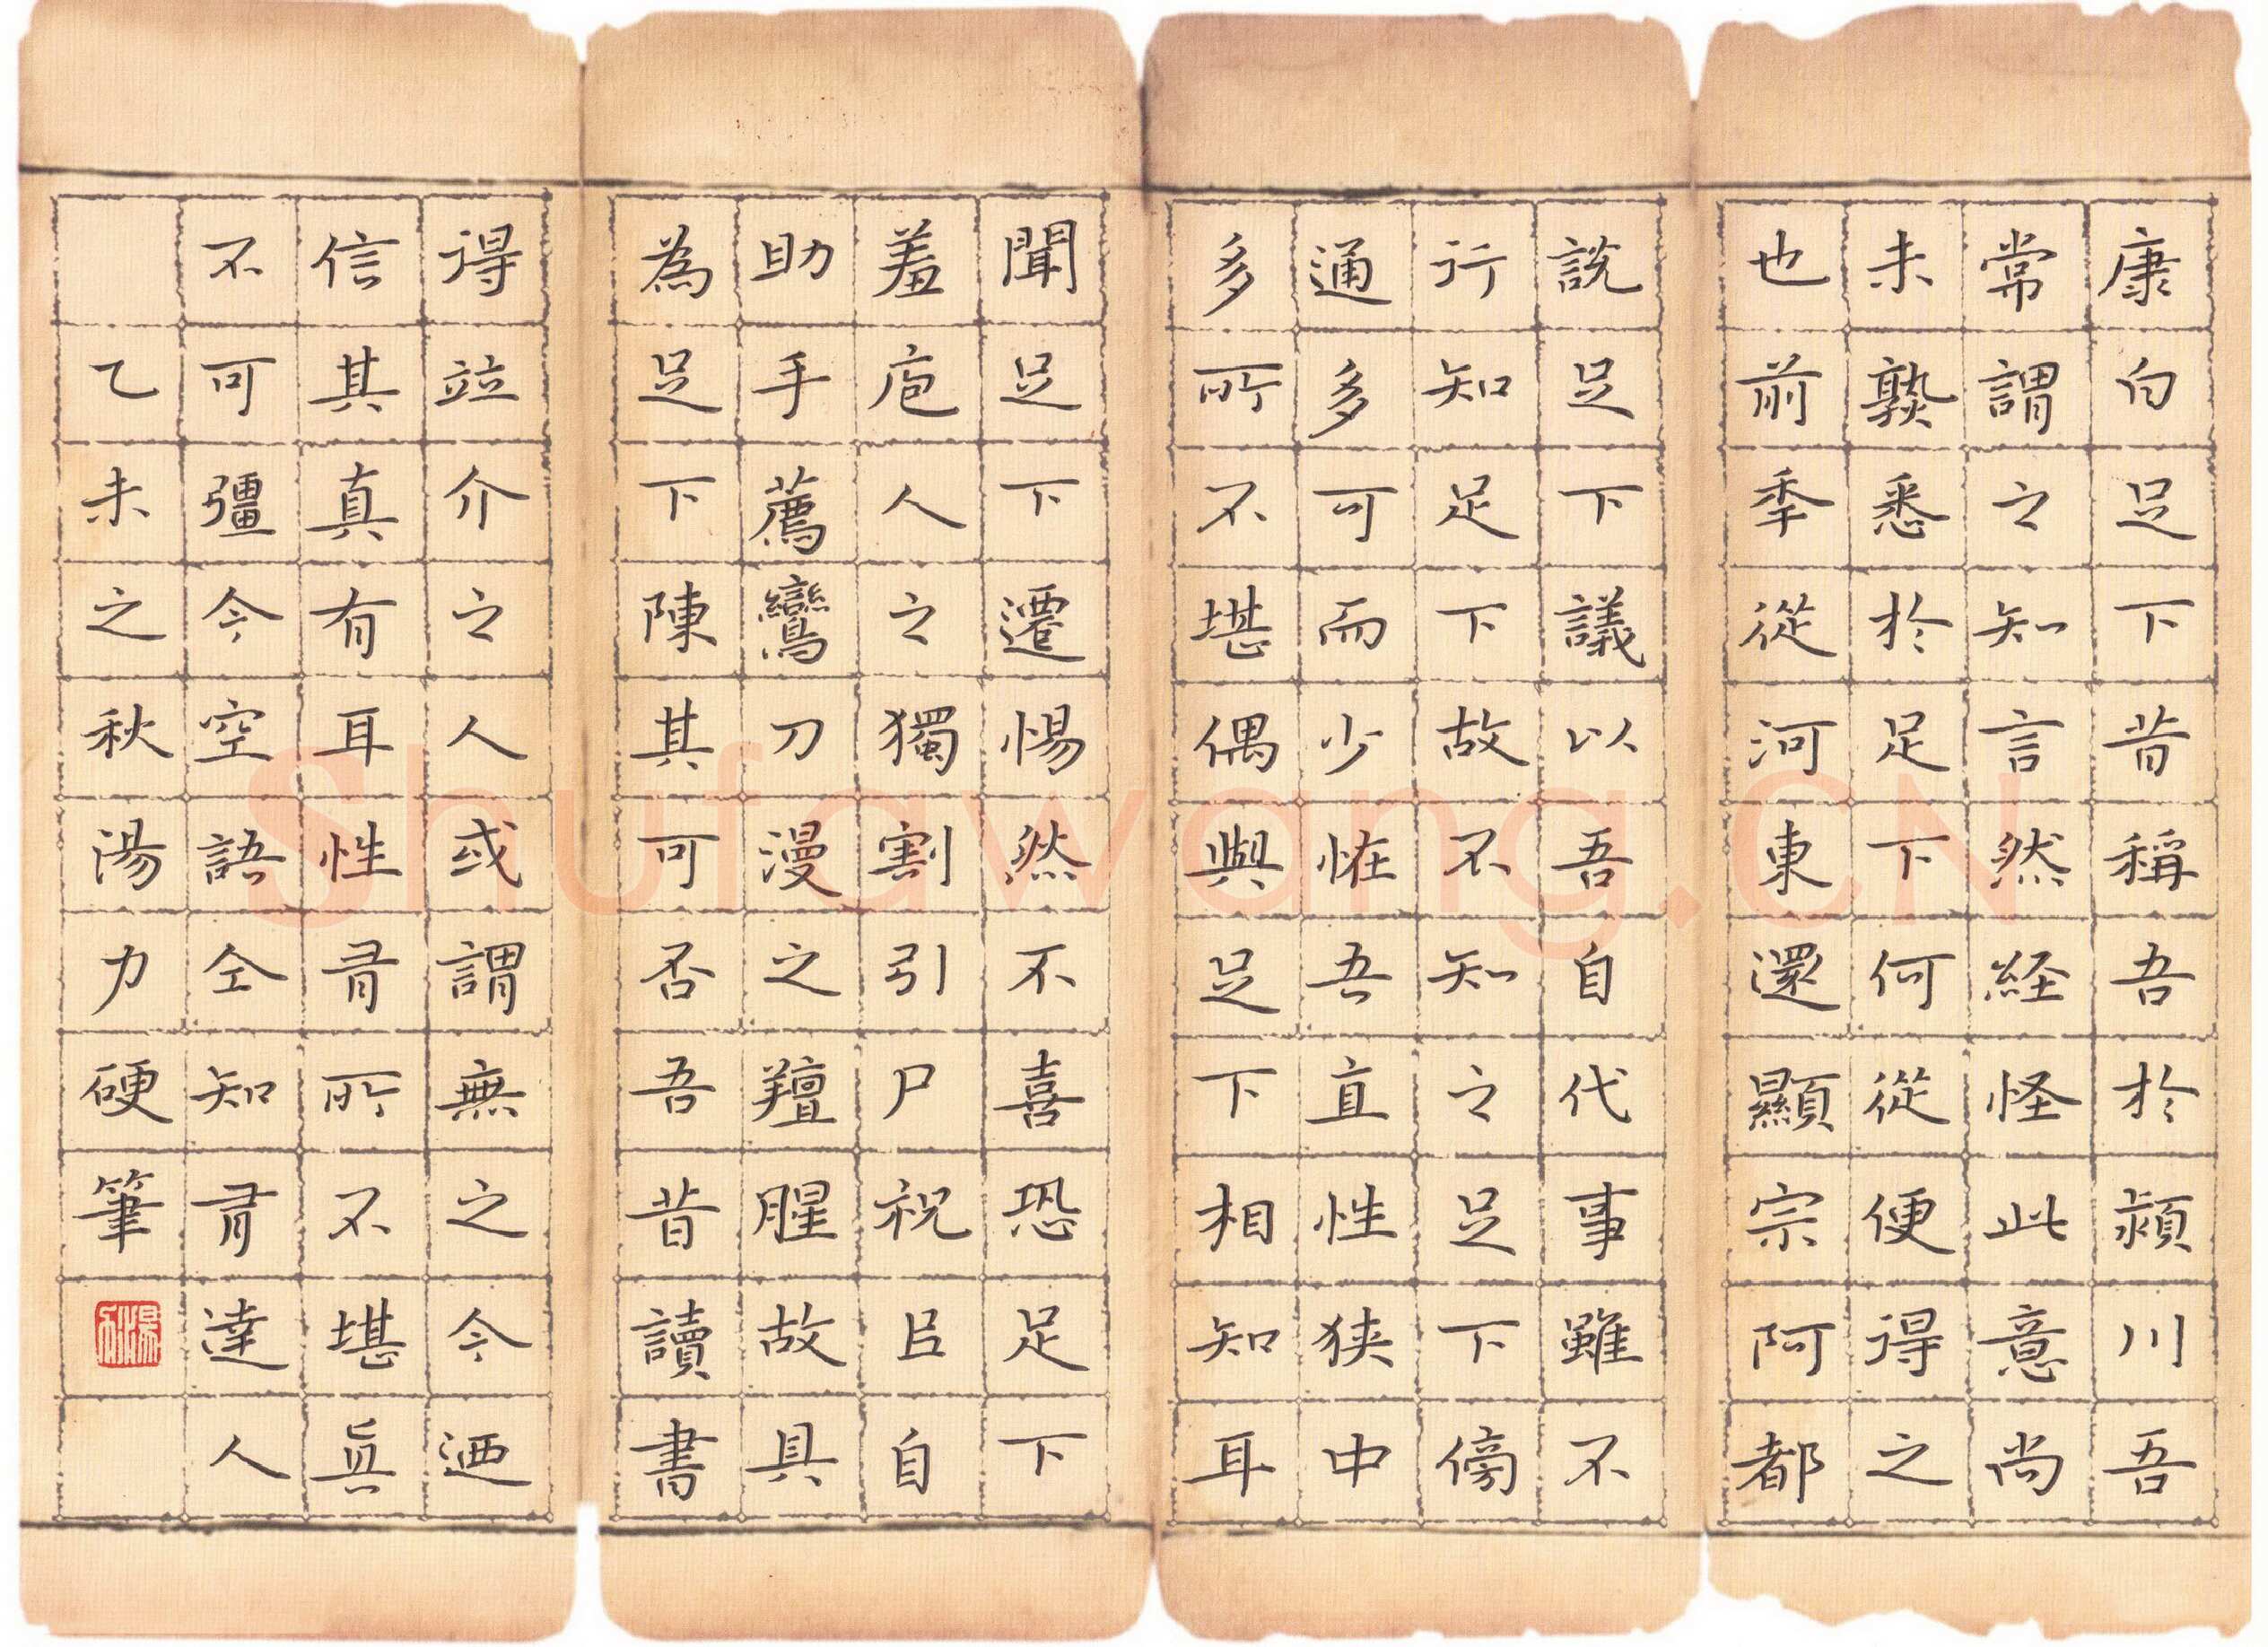 康白足下昔稱吾於潁川吾
常謂之知言然経怪此意尚
未熟悉於足下何從便得之
也前秊從河東還顯宗阿都
說足下議以吾自代事雖不
行知足下故不知之足下傍
通多可而少恠吾直性狭中
多所不堪偶與足下相知耳
聞足下遷惕然不喜恐足下
羞庖人之獨割引尸祝㠯自
助手薦鸞刀漫之羶腥故具
為足下陳其可否吾昔讀書
得竝介之人或謂無之今迺
信其真有耳性有所不堪真
不可彊今空語仝知有達人
乙未之秋湯力硬筆
Shufawang.CN